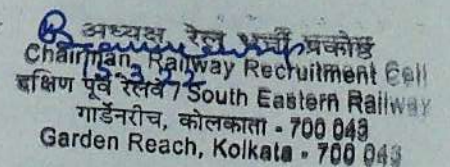 अध्यक्ष रेल भर्ती प्रकोष्ठ
Chairman, Railway Recruitment Cell
दक्षिण पूर्व रेलवे / South Eastern Railway
गार्डेनरीच, कोलकाता - 700 043
Garden Reach, Kolkata - 700 043